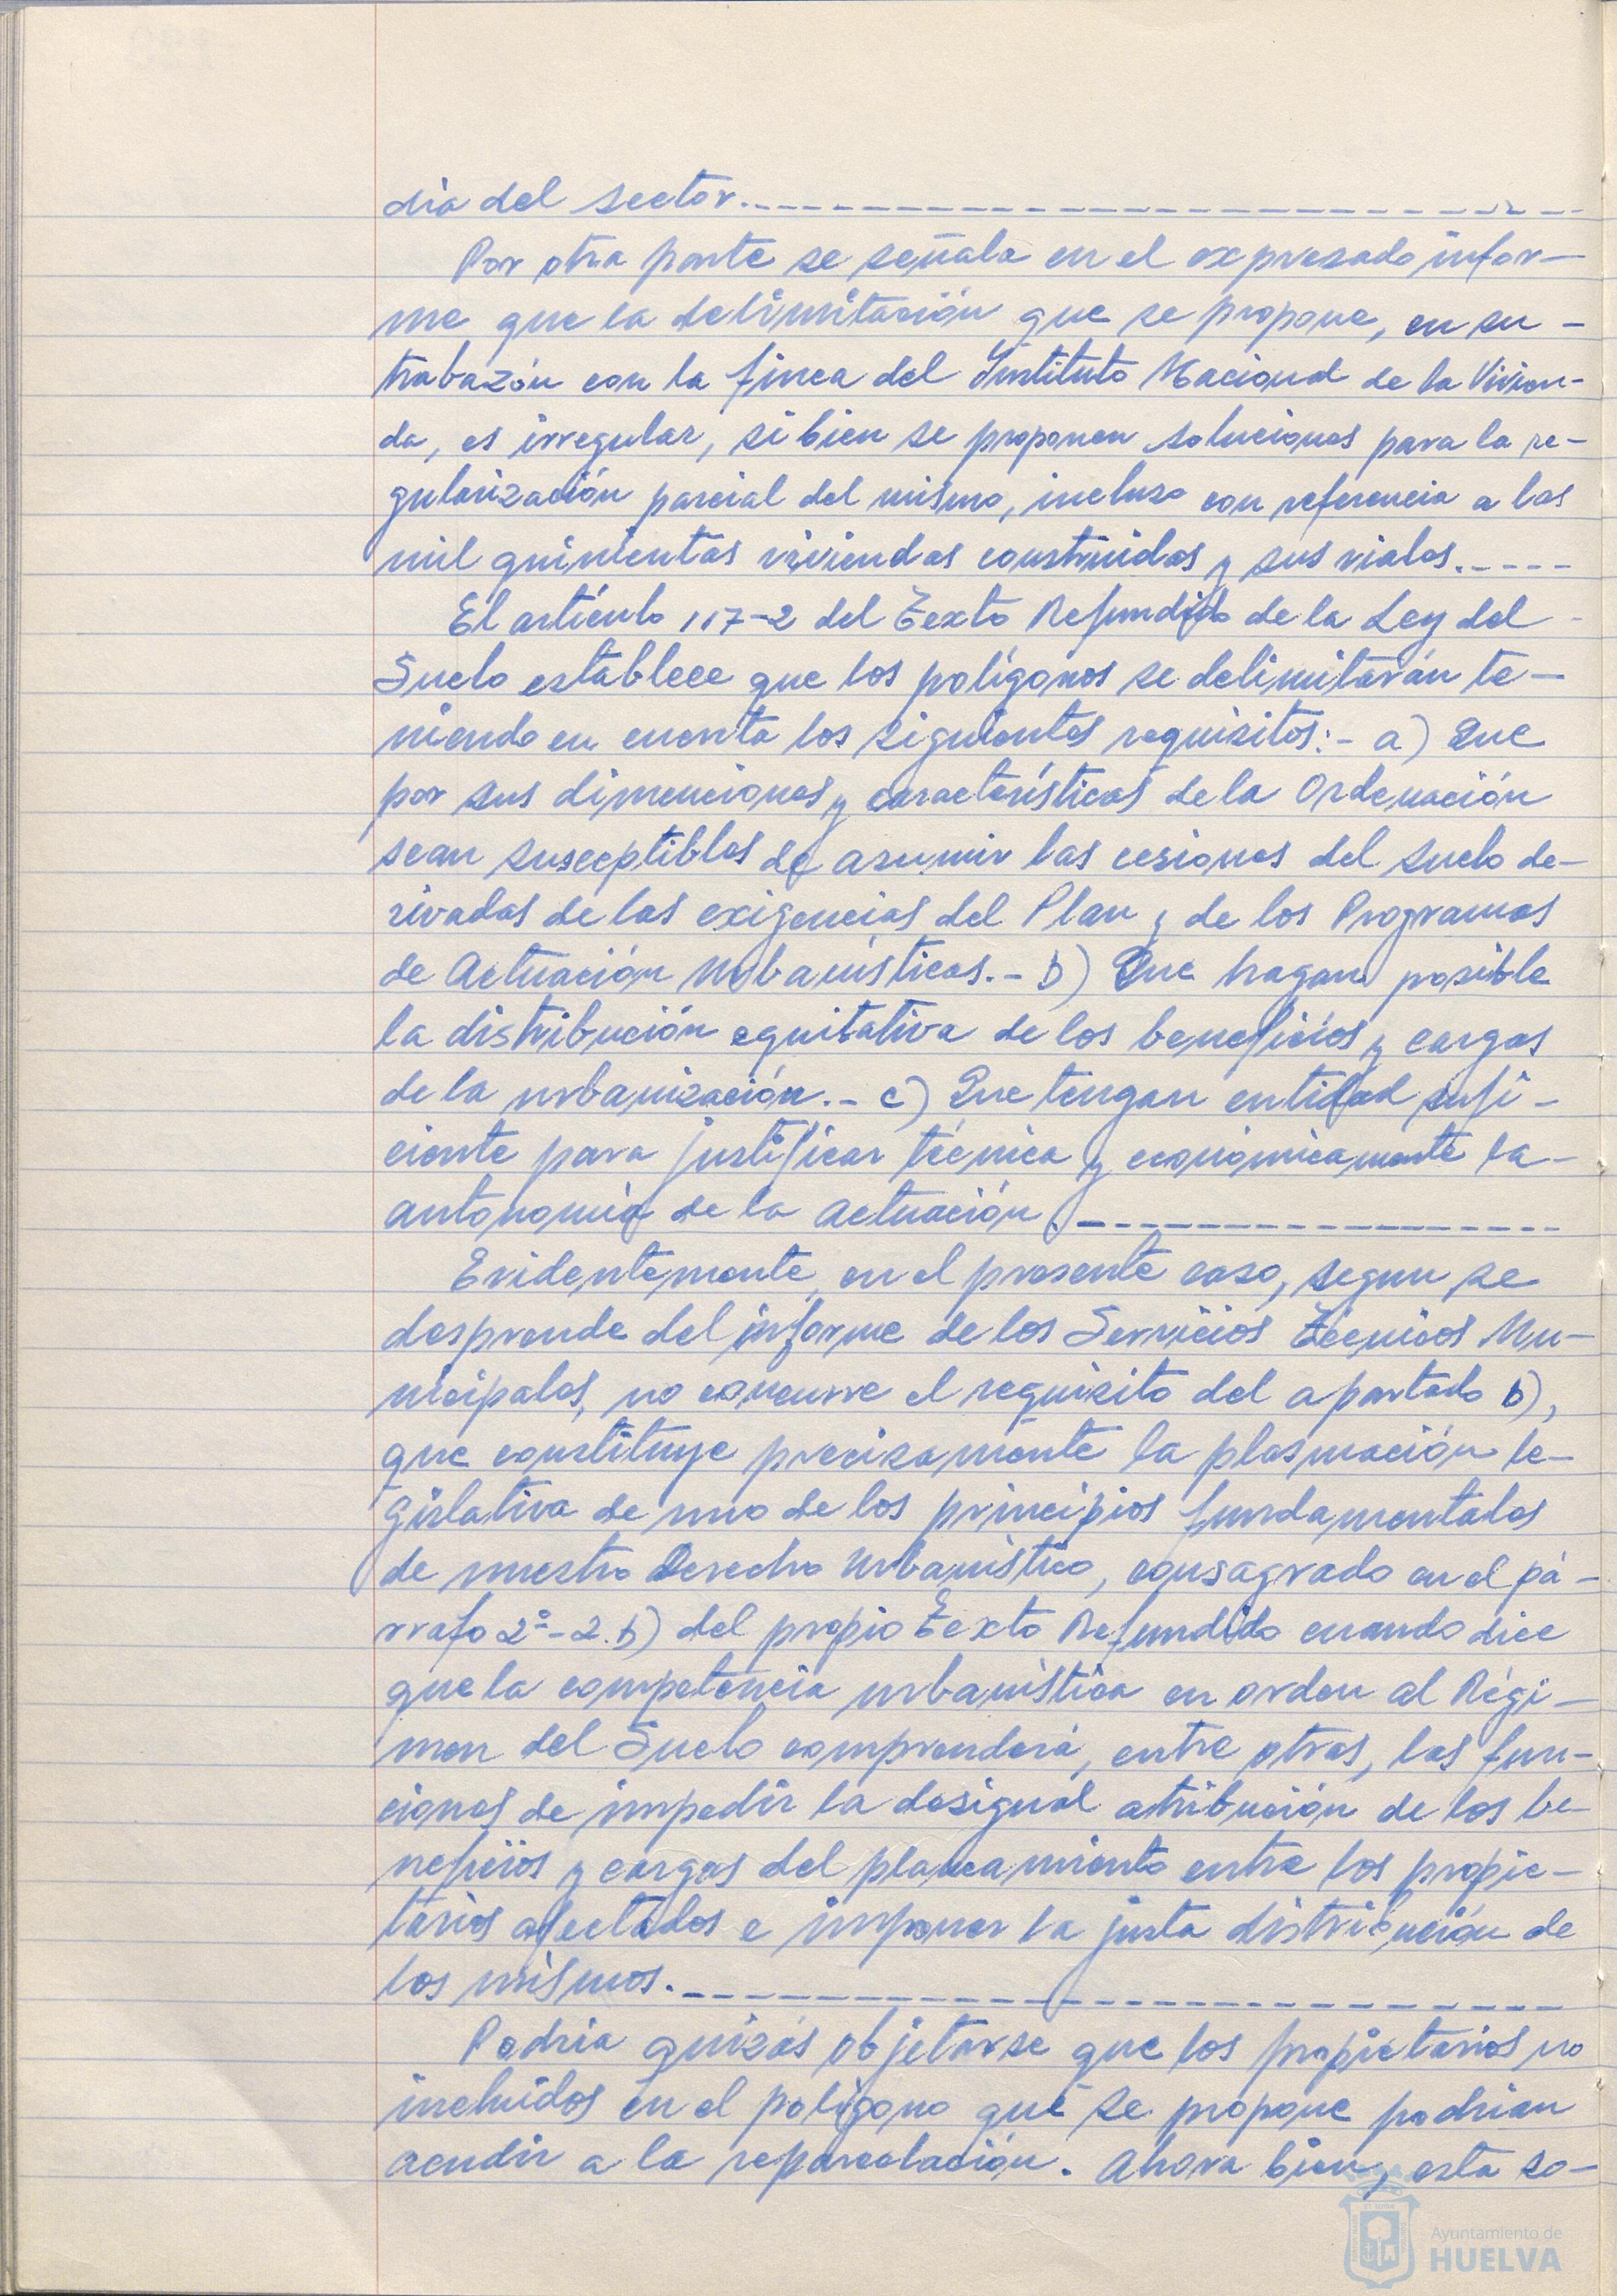 dia del sector.
Por otra parte se señala en el expresado infor-
me que la delimitación que se propone, en su -
trabazón con la finca del Instituto Nacional de la Vivien-
da, es irregular, si bien se proponen soluciones para la re-
gularización parcial del mismo, incluso con referencia a las
mil quinientas viviendas construidas y sus viales.
El artículo 117-2 del Texto Refundido de la Ley del
Suelo establece que los polígonos se delimitarán te-
niendo en cuenta los siguientes requisitos:- a) Que
por sus dimensiones y características de la Ordenación
sean susceptibles de asumir las cesiones del suelo de-
rivadas de las exigencias del Plan y de los Programas
de Actuación Urbanísticas.- b) Que hagan posible
la distribución equitativa de los beneficios y cargas
de la urbanización.- c) Que tengan entidad sufi-
ciente para justificar técnica y económicamente la-
autonomía de la actuación.
Evidentemente, en el presente caso, segun se
desprende del informe de los Servicios Técnicos Mu-
nicipales, no concurre el requisito del apartado b),
que constituye precisamente la plasmación le-
gislativa de uno de los principios fundamentales
de nuestro Derecho Urbanístico, consagrado en el pá-
rrafo 2º-2.b) del propio Texto Refundido cuando dice
que la competencia urbanística en orden al Régi-
men del Suelo comprenderá, entre otras, las fun-
ciones de impedir la desigual atribución de los be-
neficios y cargas del planeamiento entre los propie-
tarios afectados e imponer la justa distribución de
los mismos.
Podria quizás objetarse que los propietarios no
incluidos en el poligono que se propone podrian
acudir a la reparcelación. Ahora bien, esta so-
Ayuntamiento de
HUELVA